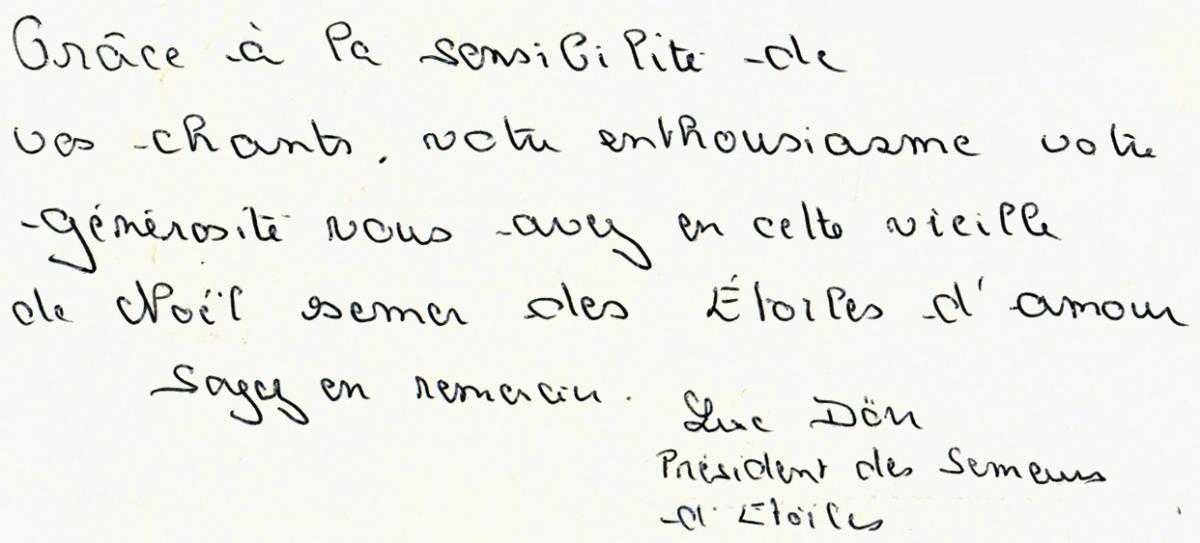 Grâce à la sensibilité de
vos chants, votre enthousiasme votre
générosité vous avez en cette vieille
de Noël semer des Étoiles d'amour
Soyez en remercier.
Luc Dön
Président des Semeurs
d'Etoiles